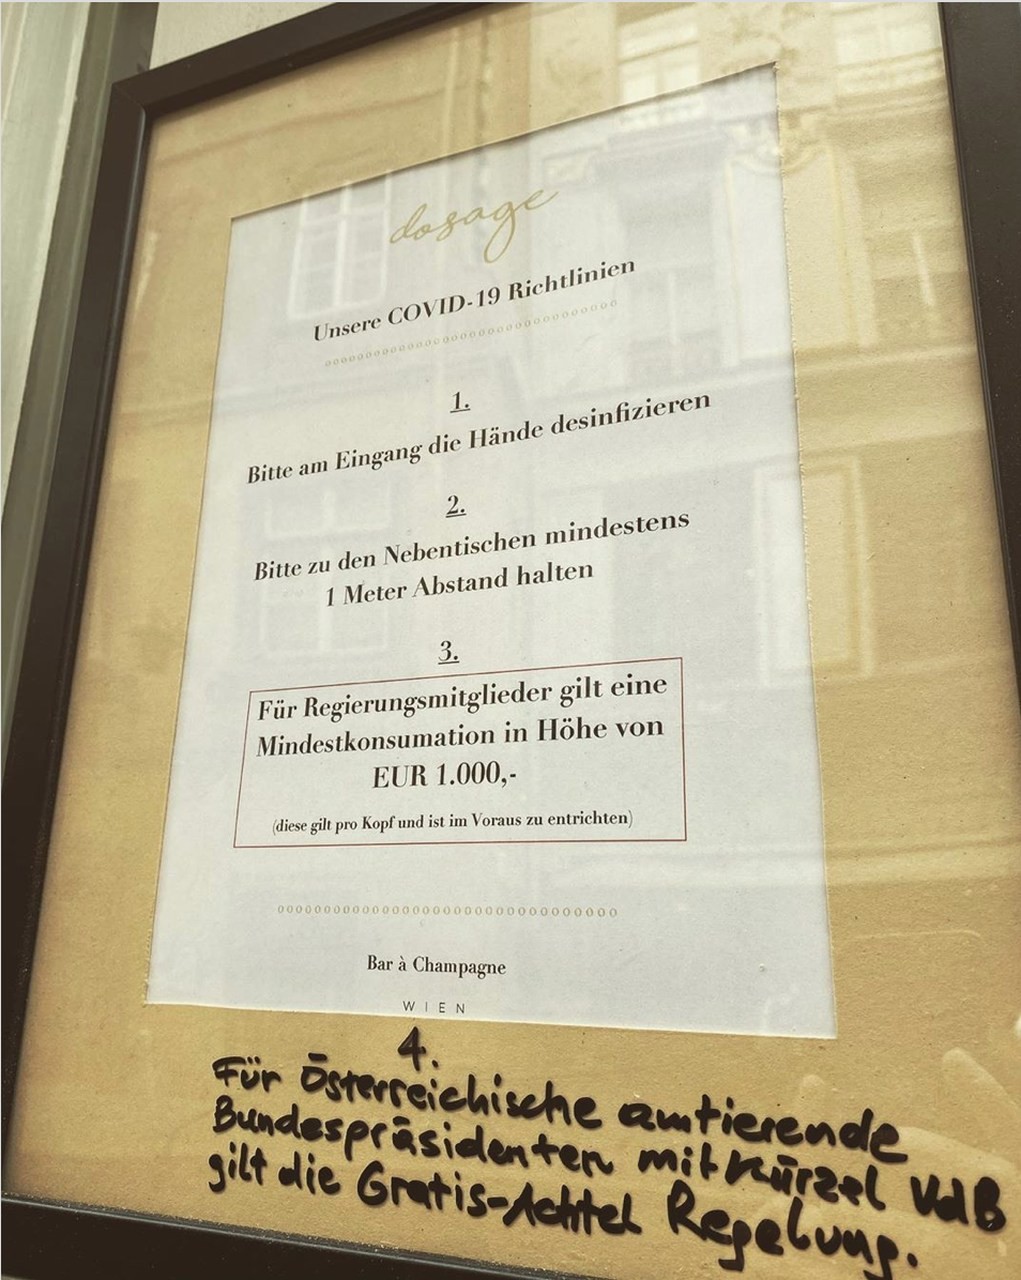 dosage
Unsere COVID-19 Richtlinien
1.
Bitte am Eingang die Hände desinfizieren
2.
Bitte zu den Nebentischen mindestens
1 Meter Abstand halten
3.
Für Regierungsmitglieder gilt eine
Mindestkonsumation in Höhe von
EUR 1.000,-
(diese gilt pro Kopf und ist im Voraus zu entrichten)
Bar à Champagne
WIEN
4.
Für Österreichische amtierende
Bundespräsidenten mit Kürzel VdB
gilt die Gratis-Achtel Regelung.